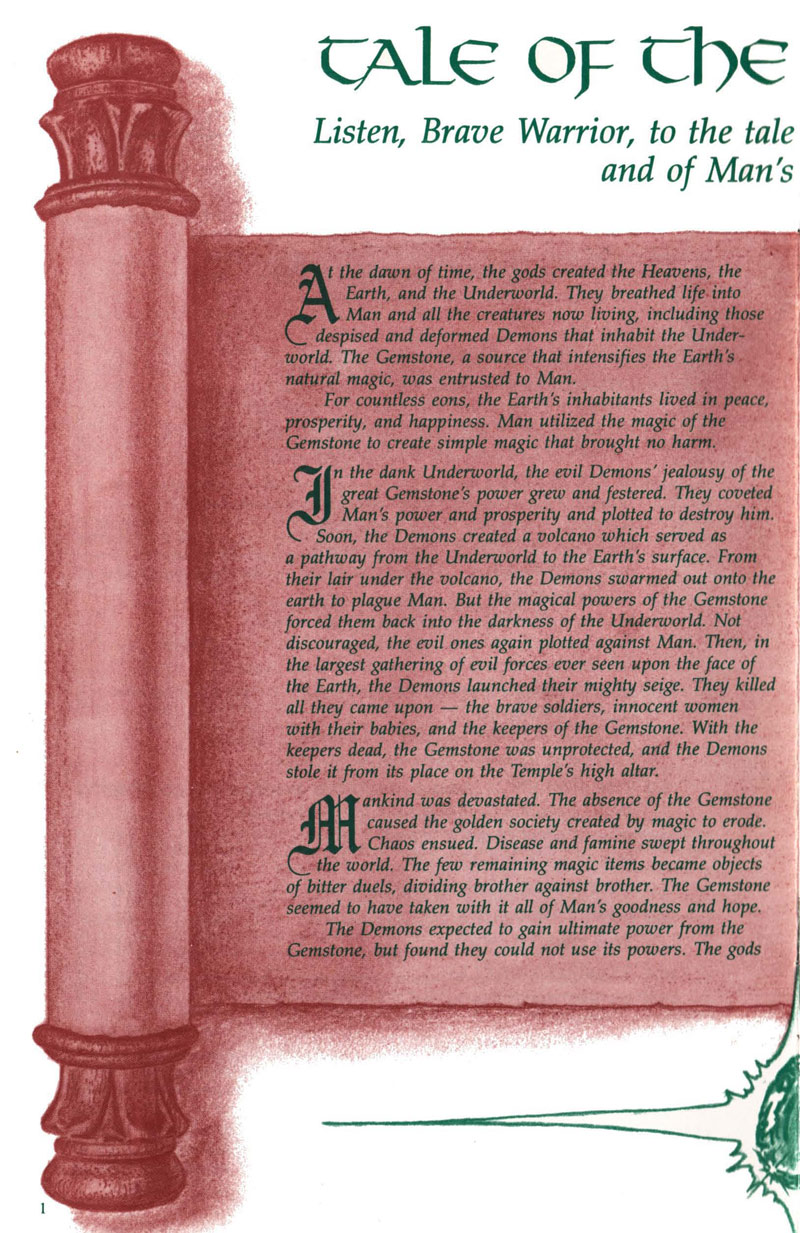 TALE OF THE
Listen, Brave Warrior, to the tale
and of Man's
At the dawn of time, the gods created the Heavens, the
Earth, and the Underworld. They breathed life into
Man and all the creatures now living, including those
despised and deformed Demons that inhabit the Under-
world. The Gemstone, a source that intensifies the Earth's
natural magic, was entrusted to Man.
For countless eons, the Earth's inhabitants lived in peace,
prosperity, and happiness. Man utilized the magic of the
Gemstone to create simple magic that brought no harm.
In the dank Underworld, the evil Demons' jealousy of the
great Gemstone's power grew and festered. They coveted
Man's power and prosperity and plotted to destroy him.
Soon, the Demons created a volcano which served as
a pathway from the Underworld to the Earth's surface. From
their lair under the volcano, the Demons swarmed out onto the
earth to plague Man. But the magical powers of the Gemstone
forced them back into the darkness of the Underworld. Not
discouraged, the evil ones again plotted against Man. Then, in
the largest gathering of evil forces ever seen upon the face of
the Earth, the Demons launched their mighty seige. They killed
all they came upon — the brave soldiers, innocent women
with their babies, and the keepers of the Gemstone. With the
keepers dead, the Gemstone was unprotected, and the Demons
stole it from its place on the Temple's high altar.
Mankind was devastated. The absence of the Gemstone
caused the golden society created by magic to erode.
Chaos ensued. Disease and famine swept throughout
the world. The few remaining magic items became objects
of bitter duels, dividing brother against brother. The Gemstone
seemed to have taken with it all of Man's goodness and hope.
The Demons expected to gain ultimate power from the
Gemstone, but found they could not use its powers. The gods
1